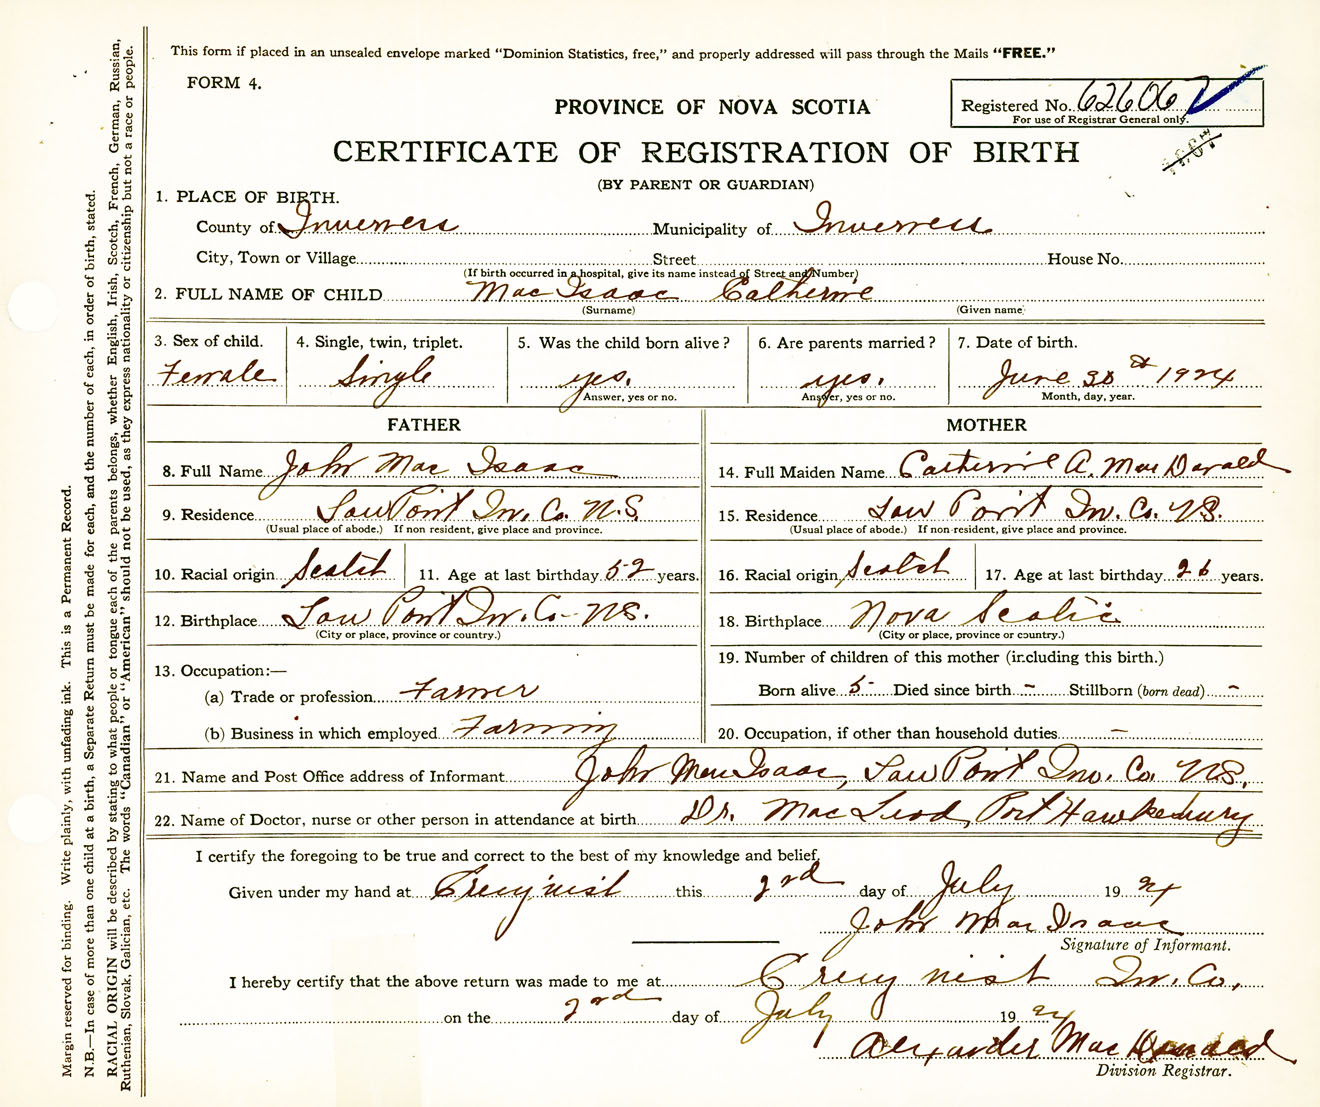 This form if placed in an unsealed envelope marked "Dominion Statistics, free," and properly addressed will pass through the Mails "FREE."
FORM 4.
PROVINCE OF NOVA SCOTIA
Registered No. 62606
For use of Registrar General only.
CERTIFICATE OF REGISTRATION OF BIRTH
(BY PARENT OR GUARDIAN)
1. PLACE OF BIRTH.
County of Inverness Municipality of Inverness
City, Town or Village Street House No.
(If birth occurred in a hospital, give its name instead of Street and Number)
2. FULL NAME OF CHILD Mac Isaac Catherine
(Surname) (Given name)
3. Sex of child. 4. Single, twin, triplet. 5. Was the child born alive? 6. Are parents married? 7. Date of birth.
Female Single yes. yes. June 30th 1924
Answer, yes or no. Answer, yes or no. Month, day, year.
FATHER MOTHER
8. Full Name John Mac Isaac 14. Full Maiden Name Catherine A. Mac Donald
9. Residence Low Point In. Co. N.S. 15. Residence Low Point In. Co. N.S.
(Usual place of abode.) If non resident, give place and province. (Usual place of abode.) If non-resident, give place and province.
10. Racial origin Scotch 11. Age at last birthday 52 years. 16. Racial origin Scotch 17. Age at last birthday 26 years.
12. Birthplace Low Point In. Co- N.S. 18. Birthplace Nova Scotia
(City or place, province or country.) (City or place, province or country.)
13. Occupation:— 19. Number of children of this mother (including this birth.)
(a) Trade or profession Farmer Born alive 5- Died since birth - Stillborn (born dead) -
(b) Business in which employed Farming 20. Occupation, if other than household duties —
21. Name and Post Office address of Informant John Mac Isaac, Low Point Inv. Co. N.S.
22. Name of Doctor, nurse or other person in attendance at birth Dr. Mac Leod, Port Hawkesbury
I certify the foregoing to be true and correct to the best of my knowledge and belief,
Given under my hand at Creignish this 2nd day of July 1924
John Mac Isaac
Signature of Informant.
I hereby certify that the above return was made to me at Creignish In. Co.
on the 2nd day of July 1924
Alexander Mac Donald
Division Registrar.
Margin reserved for binding. Write plainly, with unfading ink. This is a Permanent Record.
N.B.—In case of more than one child at a birth, a Separate Return must be made for each, and the number of each, in order of birth, stated.
RACIAL ORIGIN will be described by stating to what people or tongue each of the parents belongs, whether English, Irish, Scotch, French, German, Russian,
Ruthenian, Slovak, Galician, etc. The words "Canadian" or "American" should not be used, as they express nationality or citizenship but not a race or people.